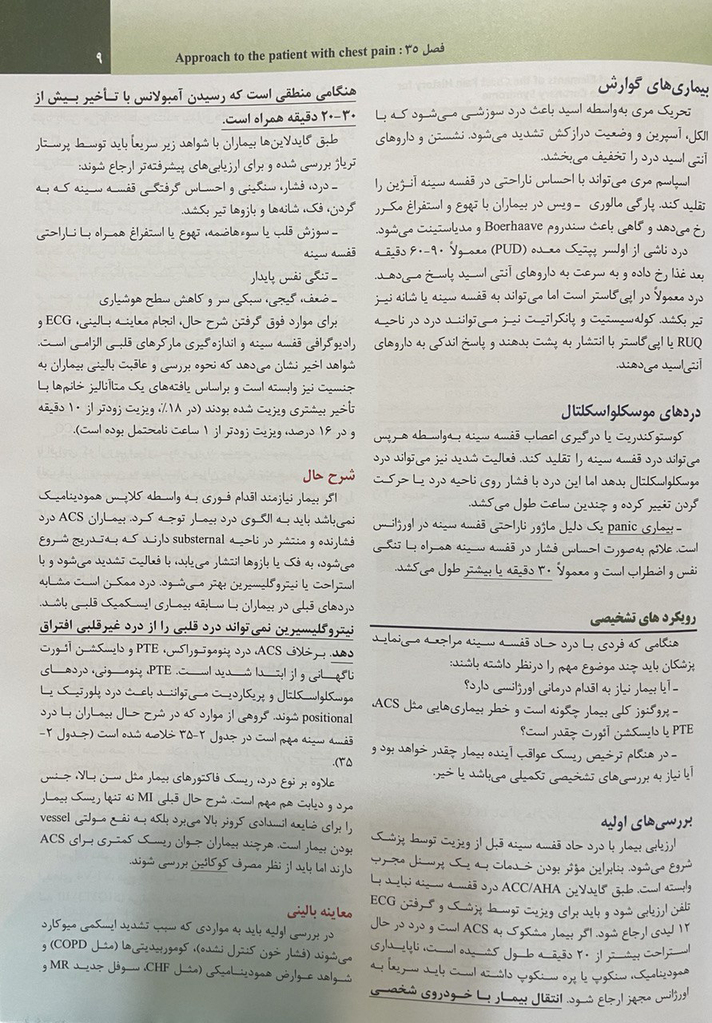 فصل ۳۵ : Approach to the patient with chest pain
۹
بیماری‌های گوارش
تحریک مری به‌واسطه اسید باعث درد سوزشی می‌شود که با
الکل، آسپرین و وضعیت درازکش تشدید می‌شود. نشستن و داروهای
آنتی اسید درد را تخفیف می‌بخشد.
اسپاسم مری می‌تواند با احساس ناراحتی در قفسه سینه آنژین را
تقلید کند. پارگی مالوری ـ ویس در بیماران با تهوع و استفراغ مکرر
رخ می‌دهد و گاهی باعث سندروم Boerhaave و مدیاستینت می‌شود.
درد ناشی از اولسر پپتیک معده (PUD) معمولاً ۹۰-۶۰ دقیقه
بعد غذا رخ داده و به سرعت به داروهای آنتی اسید پاسخ می‌دهد.
درد معمولاً در اپی‌گاستر است اما می‌تواند به قفسه سینه یا شانه نیز
تیر بکشد. کوله‌سیستیت و پانکراتیت نیز می‌توانند درد در ناحیه
RUQ یا اپی‌گاستر با انتشار به پشت بدهند و پاسخ اندکی به داروهای
آنتی‌اسید می‌دهند.
دردهای موسکلواسکلتال
کوستوکندریت یا درگیری اعصاب قفسه سینه به‌واسطه هرپس
می‌تواند درد قفسه سینه را تقلید کند. فعالیت شدید نیز می‌تواند درد
موسکلواسکلتال بدهد اما این درد با فشار روی ناحیه درد یا حرکت
گردن تغییر کرده و چندین ساعت طول می‌کشد.
ـ بیماری panic یک دلیل ماژور ناراحتی قفسه سینه در اورژانس
است. علائم به‌صورت احساس فشار در قفسه سینه همراه با تنگی
نفس و اضطراب است و معمولاً ۳۰ دقیقه یا بیشتر طول می‌کشد.
رویکرد های تشخیصی
هنگامی که فردی با درد حاد قفسه سینه مراجعه می‌نماید
پزشکان باید چند موضوع مهم را درنظر داشته باشند:
ـ آیا بیمار نیاز به اقدام درمانی اورژانسی دارد؟
ـ پروگنوز کلی بیمار چگونه است و خطر بیماری‌هایی مثل ACS،
PTE یا دایسکشن آئورت چقدر است؟
ـ در هنگام ترخیص ریسک عواقب آینده بیمار چقدر خواهد بود و
آیا نیاز به بررسی‌های تشخیصی تکمیلی می‌باشد یا خیر.
بررسی‌های اولیه
ارزیابی بیمار با درد حاد قفسه سینه قبل از ویزیت توسط پزشک
شروع می‌شود. بنابراین مؤثر بودن خدمات به یک پرسنل مجرب
وابسته است. طبق گایدلاین ACC/AHA درد قفسه سینه نباید با
تلفن ارزیابی شود و باید برای ویزیت توسط پزشک و گرفتن ECG
۱۲ لیدی ارجاع شود. اگر بیمار مشکوک به ACS است و درد در حال
استراحت بیشتر از ۲۰ دقیقه طول کشیده است، ناپایداری
همودینامیک، سنکوپ یا پره سنکوپ داشته است باید سریعاً به
اورژانس مجهز ارجاع شود. انتقال بیمار با خودروی شخصی
هنگامی منطقی است که رسیدن آمبولانس با تأخیر بیش از
۳۰-۲۰ دقیقه همراه است.
طبق گایدلاین‌ها بیماران با شواهد زیر سریعاً باید توسط پرستار
تریاژ بررسی شده و برای ارزیابی‌های پیشرفته‌تر ارجاع شوند:
ـ درد، فشار، سنگینی و احساس گرفتگی قفسه سینه که به
گردن، فک، شانه‌ها و بازوها تیر بکشد.
ـ سوزش قلب یا سوءهاضمه، تهوع یا استفراغ همراه با ناراحتی
قفسه سینه
ـ تنگی نفس پایدار
ـ ضعف، گیجی، سبکی سر و کاهش سطح هوشیاری
برای موارد فوق گرفتن شرح حال، انجام معاینه بالینی، ECG و
رادیوگرافی قفسه سینه و اندازه‌گیری مارکرهای قلبی الزامی است.
شواهد اخیر نشان می‌دهد که نحوه بررسی و عاقبت بالینی بیماران به
جنسیت نیز وابسته است و براساس یافته‌های یک متاآنالیز خانم‌ها با
تأخیر بیشتری ویزیت شده بودند (در ۱۸٪، ویزیت زودتر از ۱۰ دقیقه
و در ۱۶ درصد، ویزیت زودتر از ۱ ساعت نامحتمل بوده است).
شرح حال
اگر بیمار نیازمند اقدام فوری به واسطه کلاپس همودینامیک
نمی‌باشد باید به الگوی درد بیمار توجه کرد. بیماران ACS درد
فشارنده و منتشر در ناحیه substernal دارند که به‌تدریج شروع
می‌شود، به فک یا بازوها انتشار می‌یابد، با فعالیت تشدید می‌شود و با
استراحت یا نیتروگلیسیرین بهتر می‌شود. درد ممکن است مشابه
دردهای قبلی در بیماران با سابقه بیماری ایسکمیک قلبی باشد.
نیتروگلیسیرین نمی‌تواند درد قلبی را از درد غیرقلبی افتراق
دهد. برخلاف ACS، درد پنوموتوراکس، PTE و دایسکشن آئورت
ناگهانی و از ابتدا شدید است. PTE، پنومونی، دردهای
موسکلواسکلتال و پریکاردیت می‌توانند باعث درد پلورتیک یا
positional شوند. گروهی از موارد که در شرح حال بیماران با درد
قفسه سینه مهم است در جدول ۲-۳۵ خلاصه شده است (جدول ۲-
۳۵).
علاوه بر نوع درد، ریسک فاکتورهای بیمار مثل سن بالا، جنس
مرد و دیابت هم مهم است. شرح حال قبلی MI نه تنها ریسک بیمار
را برای ضایعه انسدادی کرونر بالا می‌برد بلکه به نفع مولتی vessel
بودن بیمار است. هرچند بیماران جوان ریسک کمتری برای ACS
دارند اما باید از نظر مصرف کوکائین بررسی شوند.
معاینه بالینی
در بررسی اولیه باید به مواردی که سبب تشدید ایسکمی میوکارد
می‌شوند (فشار خون کنترل نشده)، کوموربیدیتی‌ها (مثل COPD) و
شواهد عوارض همودینامیکی (مثل CHF، سوفل جدید MR و